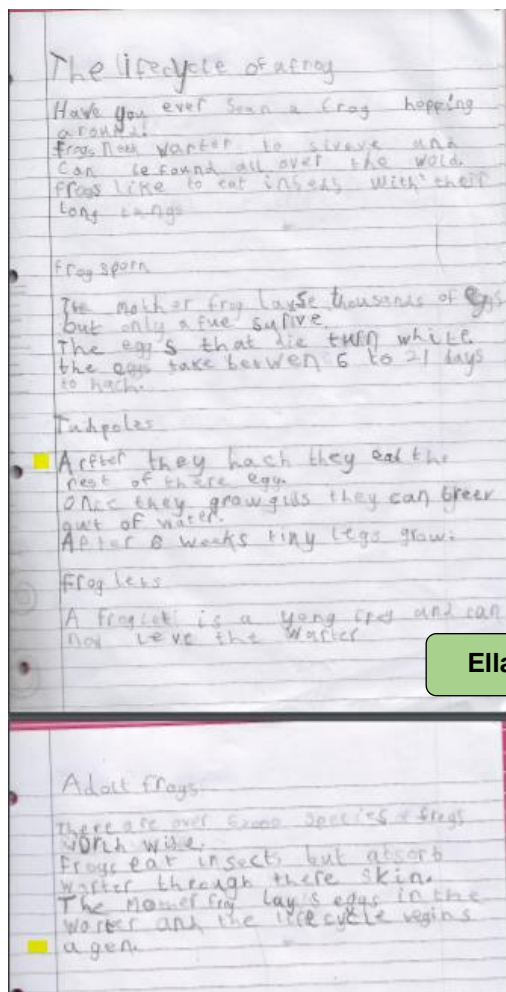 The lifecycle of a frog
Have you ever sean a frog hopping
around!
frogs warter to sirvve and
can be found all over the wold.
frogs like to eat insess with their
long tangs
frog sporn
The mother frog layse thousands of eggs
but only a fue surive.
The eggs that die turn white.
the eggs take betwen 6 to 21 days
to hach.
Tadpoles
Arfter they hach they eat the
rest of there egg.
Once they grow gills they can
out of water.
After 6 weeks tiny legs grow.
Frog lets
A froglet is a yong frog and can
now leve the warter
Ella
Adolt frogs
There are over species frogs
worth wide.
Frogs eat insects but absorb
warter through there skin.
The frog lay's eggs in the
warter and the lifecycle begins
a gen.